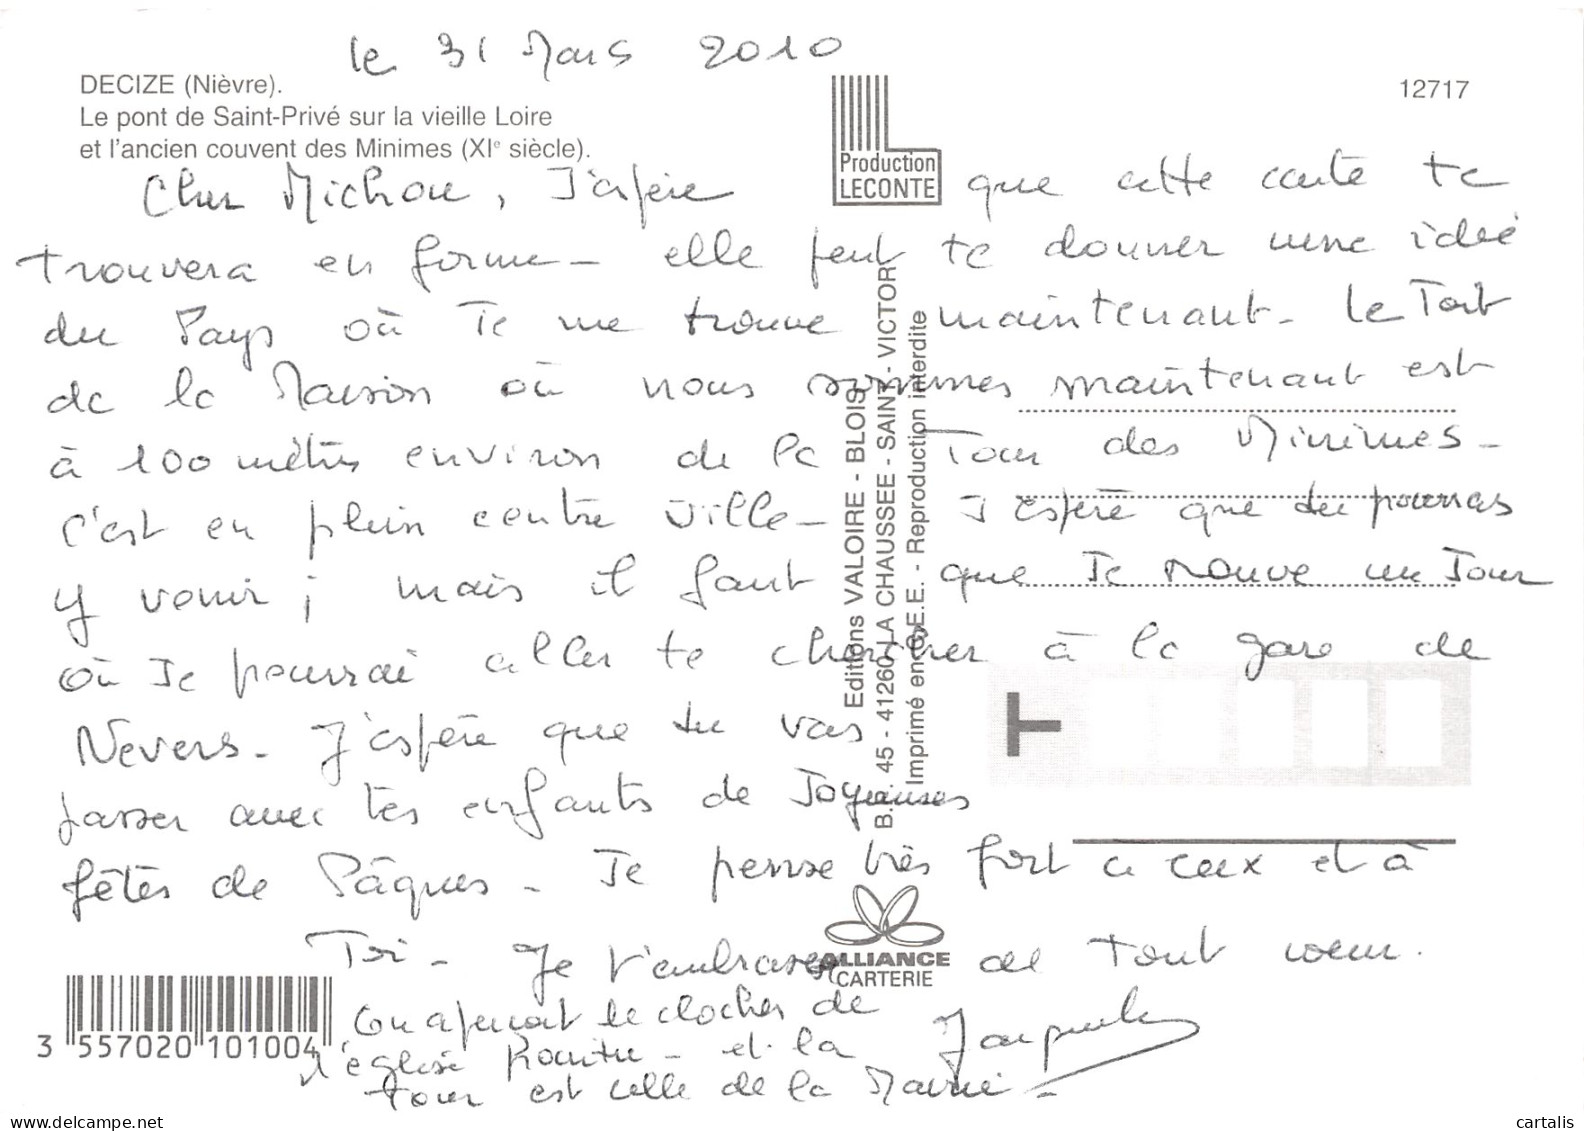 le 31 Mars 2010
DECIZE (Nièvre).
Le pont de Saint-Privé sur la vieille Loire
et l'ancien couvent des Minimes (XIe siècle).
12717
Production
LECONTE
Cher Michou, J'espère que cette carte te
trouvera en forme - elle peut te donner une idée
du Pays où Je me trouve maintenant - Le Toit
de la Maison où nous sommes maintenant est
à 100 mètres environ de la Tour des Minimes -
C'est en plein centre Ville - J'espère que tu pourras
y venir ; mais il faut que Je trouve un Jour
où Je pourrai aller te chercher à la gare de
Nevers - J'espère que tu vas
passer avec tes enfants de Joyeuses
fêtes de Pâques - Je pense très fort à ceux et à
Toi - Je t'embrasse de Tout coeur.
On aperçoit le clocher de
l'église - et la
tour est celle de la Mairie -
Jacqueline
Editions VALOIRE - BLOIS
B.P. 45 - 41260 LA CHAUSSEE - SAINT - VICTOR
Imprimé en C.E.E. - Reproduction interdite
T
ALLIANCE
CARTERIE
3 557020 101004
www.delcampe.net
cartalis